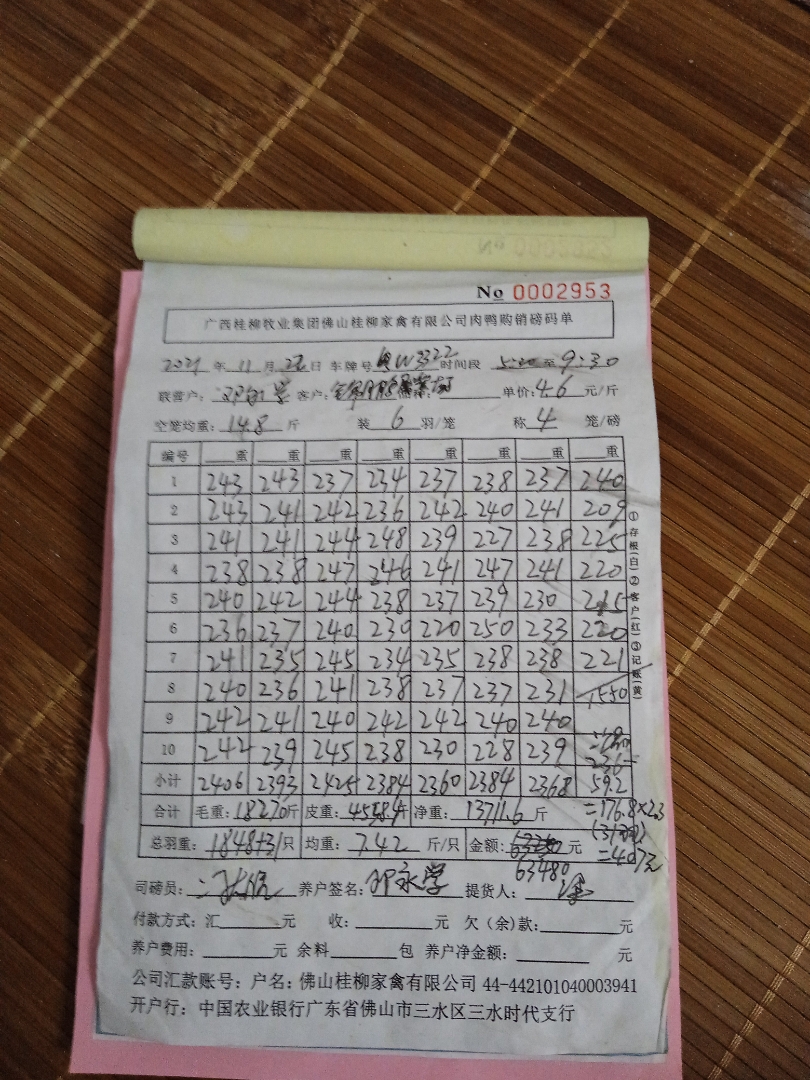 No 0002953
广西桂柳牧业集团佛山桂柳家禽有限公司肉鸭购销磅码单
2021 年 11 月 22 日 车牌号 W3322 时间段 5:20 至 9:30
联营户: 客户: 单价: 4.6 元/斤
空笼均重: 14.8 斤 装 6 羽/笼 称 4 笼/磅
编号 重 重 重 重 重 重 重 重
1 243 243 237 234 237 238 237 240
2 243 241 242 236 242 240 241 209
3 241 241 244 248 239 227 238 225
4 238 238 247 246 241 247 241 220
5 240 242 244 238 237 239 230 215
6 236 237 240 230 220 250 233 220
7 241 235 245 234 235 238 238 221
8 240 236 241 238 237 237 231 1550
9 242 241 240 242 242 240 240
10 242 239 245 238 230 228 239 236-
小计 2406 2393 2425 2384 2360 2384 2368 59.2
合计 毛重: 18270 斤 皮重: 4558.4 斤 净重: 13711.6 斤 =176.8×2.3
总羽重: 1848+31 只 均重: 7.42 斤/只 金额: 元 (31羽)
63480 =407元
司磅员: 养户签名: 邓永学 提货人:
付款方式: 汇 元 收: 元 欠(余)款: 元
养户费用: 元 余料 包 养户净金额: 元
公司汇款账号: 户名: 佛山桂柳家禽有限公司 44-442101040003941
开户行: 中国农业银行广东省佛山市三水区三水时代支行
①存根(白)②客户(红)③记账(黄)